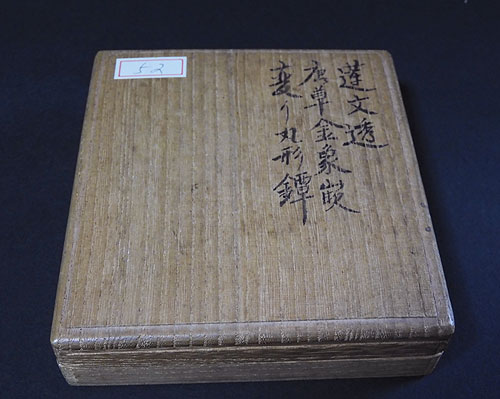 52
蓮文透
唐草金象嵌
変り丸形鐔